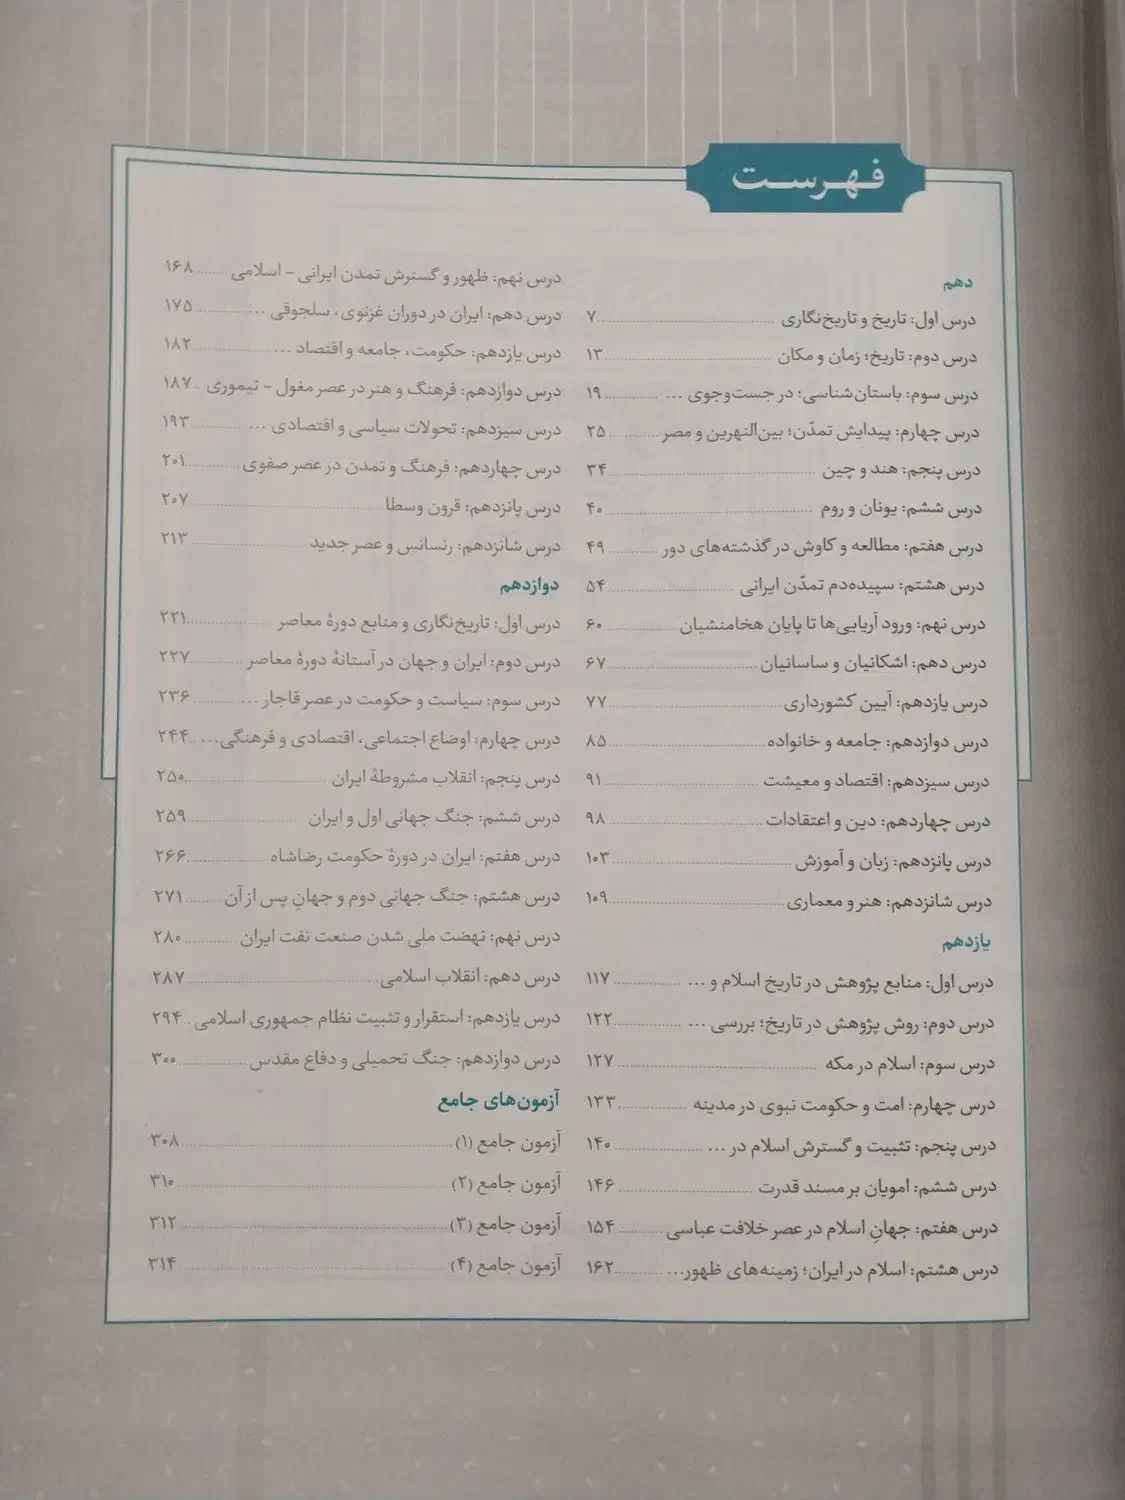 فهرست
دهم
درس اول: تاریخ و تاریخ‌نگاری ........ ۷
درس دوم: تاریخ؛ زمان و مکان ........ ۱۳
درس سوم: باستان‌شناسی؛ در جست‌وجوی ... ........ ۱۹
درس چهارم: پیدایش تمدّن؛ بین‌النهرین و مصر ........ ۲۵
درس پنجم: هند و چین ........ ۳۴
درس ششم: یونان و روم ........ ۴۰
درس هفتم: مطالعه و کاوش در گذشته‌های دور ........ ۴۹
درس هشتم: سپیده‌دم تمدّن ایرانی ........ ۵۴
درس نهم: ورود آریایی‌ها تا پایان هخامنشیان ........ ۶۰
درس دهم: اشکانیان و ساسانیان ........ ۶۷
درس یازدهم: آیین کشورداری ........ ۷۷
درس دوازدهم: جامعه و خانواده ........ ۸۵
درس سیزدهم: اقتصاد و معیشت ........ ۹۱
درس چهاردهم: دین و اعتقادات ........ ۹۸
درس پانزدهم: زبان و آموزش ........ ۱۰۳
درس شانزدهم: هنر و معماری ........ ۱۰۹
یازدهم
درس اول: منابع پژوهش در تاریخ اسلام و ... ........ ۱۱۷
درس دوم: روش پژوهش در تاریخ؛ بررسی ... ........ ۱۲۲
درس سوم: اسلام در مکه ........ ۱۲۷
درس چهارم: امت و حکومت نبوی در مدینه ........ ۱۳۳
درس پنجم: تثبیت و گسترش اسلام در ... ........ ۱۴۰
درس ششم: امویان بر مسند قدرت ........ ۱۴۶
درس هفتم: جهانِ اسلام در عصر خلافت عباسی ........ ۱۵۴
درس هشتم: اسلام در ایران؛ زمینه‌های ظهور... ........ ۱۶۲
درس نهم: ظهور و گسترش تمدن ایرانی - اسلامی ........ ۱۶۸
درس دهم: ایران در دوران غزنوی، سلجوقی ... ........ ۱۷۵
درس یازدهم: حکومت، جامعه و اقتصاد ... ........ ۱۸۲
درس دوازدهم: فرهنگ و هنر در عصر مغول - تیموری .. ۱۸۷
درس سیزدهم: تحولات سیاسی و اقتصادی ... ........ ۱۹۳
درس چهاردهم: فرهنگ و تمدن در عصر صفوی ........ ۲۰۱
درس پانزدهم: قرون وسطا ........ ۲۰۷
درس شانزدهم: رنسانس و عصر جدید ........ ۲۱۳
دوازدهم
درس اول: تاریخ‌نگاری و منابع دورهٔ معاصر ........ ۲۲۱
درس دوم: ایران و جهان در آستانهٔ دورهٔ معاصر ........ ۲۲۷
درس سوم: سیاست و حکومت در عصر قاجار ... ........ ۲۳۶
درس چهارم: اوضاع اجتماعی، اقتصادی و فرهنگی... .. ۲۴۴
درس پنجم: انقلاب مشروطهٔ ایران ........ ۲۵۰
درس ششم: جنگ جهانی اول و ایران ........ ۲۵۹
درس هفتم: ایران در دورهٔ حکومت رضاشاه ........ ۲۶۶
درس هشتم: جنگ جهانی دوم و جهانِ پس از آن ........ ۲۷۱
درس نهم: نهضت ملی شدن صنعت نفت ایران ........ ۲۸۰
درس دهم: انقلاب اسلامی ........ ۲۸۷
درس یازدهم: استقرار و تثبیت نظام جمهوری اسلامی .. ۲۹۴
درس دوازدهم: جنگ تحمیلی و دفاع مقدس ........ ۳۰۰
آزمون‌های جامع
آزمون جامع (۱) ........ ۳۰۸
آزمون جامع (۲) ........ ۳۱۰
آزمون جامع (۳) ........ ۳۱۲
آزمون جامع (۴) ........ ۳۱۴